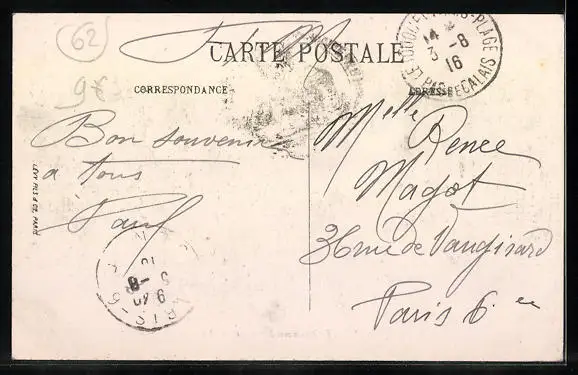 62
F. M.
CARTE POSTALE
98
CORRESPONDANCE
ADRESSE
LE TOUQUET-PARIS-PLAGE
14
3 -8
16
PAS DE CALAIS
Bon souvenir
à tous
Paul
Melle Renée
Magot
36 rue de Vaugirard
Paris 6ee
LÉVY FILS & CIE, PARIS
PARIS-6